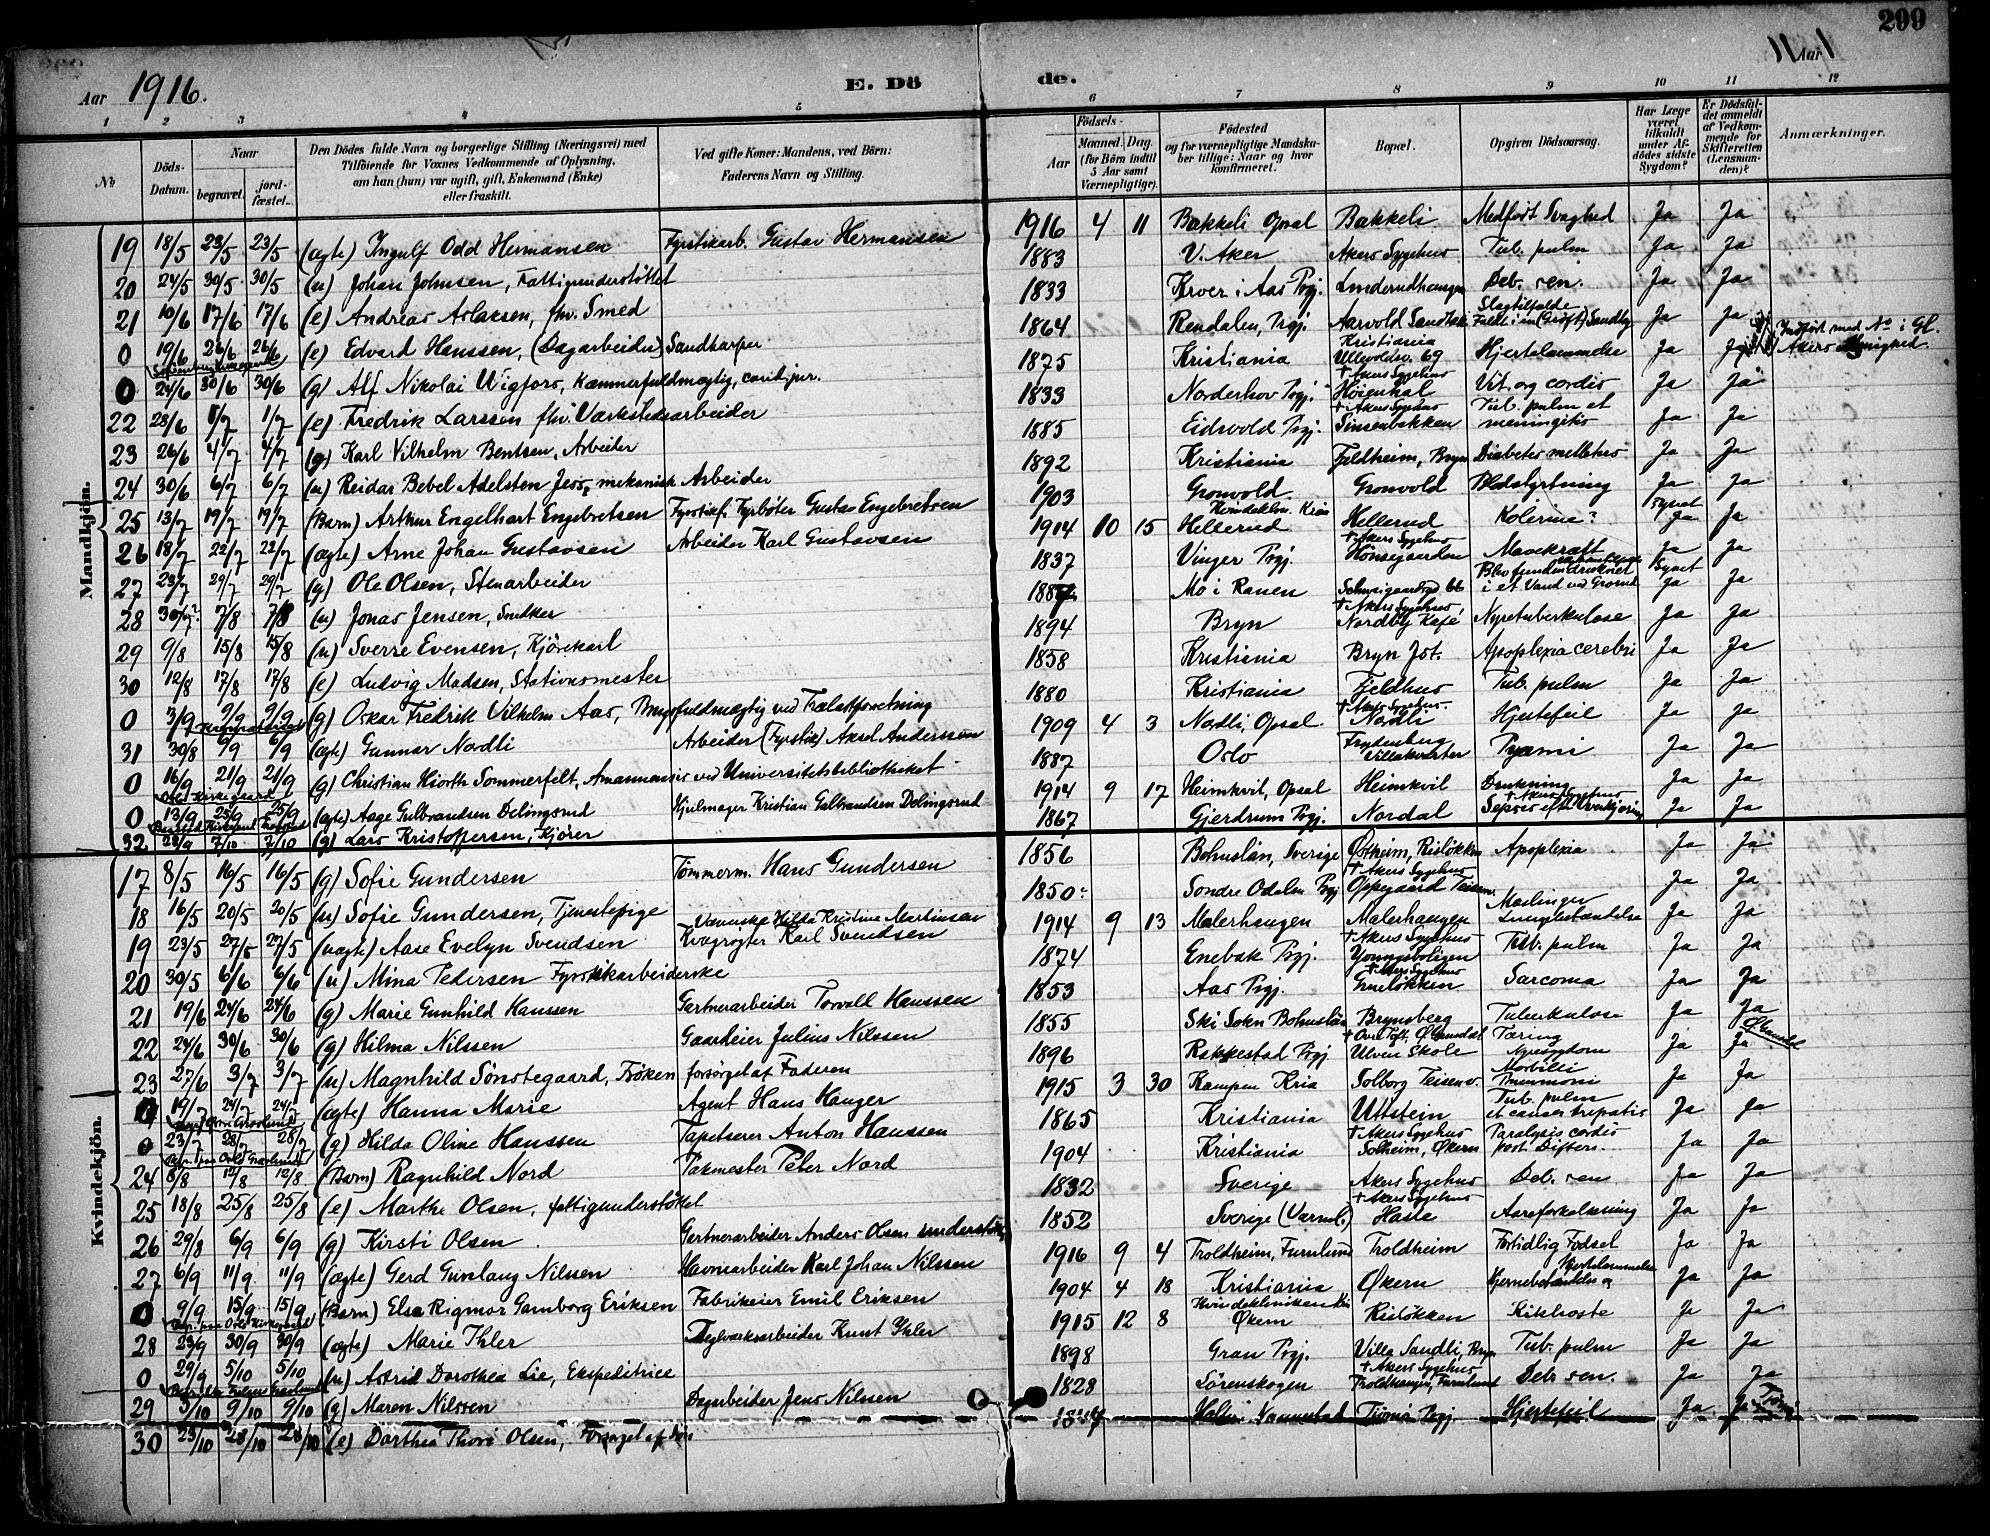 299
Aar 1916.
E. Dö de.
Aar
1 2 3 4 5 6 7 8 9 10 11 12
№
Döds-Datum.
Naar
begravet.
jord-fæstet.
Den Dödes fulde Navn og borgerlige Stilling (Næringsvei) med Tilföiende for Voxnes Vedkommende af Oplysning, om han (hun) var ugift, gift, Enkemand (Enke) eller fraskilt.
Ved gifte Koner: Mandens, ved Börn: Faderens Navn og Stilling.
Födsels-
Aar
Maaned. Dag.
(for Börn indtil 5 Aar samt Værnepligtige).
Födested og for værnepligtige Mandskaber tillige: Naar og hvor konfirmeret.
Bopæl.
Opgiven Dödsaarsag.
Har Læge været tilkaldt under Afdödes sidste Sygdom?
Er Dödsfaldet anmeldt af Vedkommende for Skifteretten (Lensmanden)?
Anmærkninger.
Mandkjön.
19 18/5 23/5 23/5 (ægte) Ingulf Odd Hermansen Fyrstikarb. Gustav Hermansen 1916 4 11 Bakkeli Opsal Bakkeli Medfödt Svaghed Ja Ja
20 24/5 30/5 30/5 (u) Johan Johnsen, Fattigunderstöttet 1883 V. Aker Akers Sygehus Tub. pulm Ja Ja
21 10/6 17/6 17/6 (e) Andreas Aslaksen, fhv. Smed 1833 Kroer i Aas Prgj. Linderudhaugen Deb. sen. Ja Ja
0 19/6 26/6 26/6 (e) Edvard Hanssen, (Dagarbeider) Sandharper 1864 Rendalen, Prgj. Aarvold Sandtak Slagtilfælde Faldt i en (Gröft) Ja Ja
0 24/6 30/6 30/6 (g) Alf Nikolai Wigfors, Kæmnerfuldmægtig, cand. jur. 1875 Kristiania Kristiania Ullevoldsv. 69 Hjertelammelse Ja Indfört med № i Gl. Akers Menighed
22 28/6 1/7 1/7 (e) Fredrik Larssen fhv. Værkstedsarbeider 1833 Norderhov Prgj. + Akers Sygehus Höienhal Vit. org cordis Ja Ja
23 26/6 4/7 4/7 (g) Karl Vilhelm Bentsen, Arbeider 1885 Eidsvold Prgj. + Akers Sygehus Sinsenbakken Tub. pulm et meningitis Ja Ja
24 30/6 6/7 6/7 (u) Reidar Bebel Adelsten Jess, mekanisk Arbeider 1892 Kristiania Fjeldheim, Bryn Diabetes mellitus Ja Ja
25 13/7 19/7 19/7 (Barn) Arthur Engelhart Engebretsen Fyrstikf. Fyrböter Gustav Engebretsen 1903 Grönvold Grönvold Blodstyrtning Ja Ja
26 18/7 22/7 22/7 (ægte) Arne Johan Gustavsen Arbeider Karl Gustavsen 1914 10 15 Kvindeklin. Kria Hellerud Hellerud Kolerine? Synet Ja Ja
27 23/7 29/7 29/7 (g) Ole Olsen, Stenarbeider 1837 Vinger Prgj. + Akers Sygehus Hönsegaarden Mavekræft Ja Ja
28 30/7? 7/8 7/8 (u) Jonas Jensen, Snedker Mo i Ranen Schweigaardsgd 66 Blev funden druknet i et Vand ved Grorud Synet Ja Ja
29 9/8 15/8 15/8 (u) Sverre Evensen, Kjörekarl 1894 Bryn + Akers Sygehus, Nordby Kafe Nyretuberkulose Ja Ja
30 12/8 17/8 17/8 (e) Ludvig Madsen, Stationsmester 1858 Kristiania Bryn St. Apoplexia cerebri Ja Ja
0 3/9 9/9 9/9 (g) Oskar Fredrik Vilhelm Aas, Brugsfuldmægtig ved Trælastforretning 1880 Kristiania Fjeldhus Tub. pulm Ja Ja
31 30/8 6/9 6/9 (ægte) Gunnar Nordli Arbeider (Fyrstik) Aksel Anderssen 1909 4 3 Nordli, Opsal + Akers Sygehus Nordli Hjertefeil Ja Ja
0 16/9 21/9 21/9 (g) Christian Hiorth Sommerfelt, Amanuensis ved Universitetsbibliotheket 1887 Oslo Frydenberg Villakvarter Pyæmi Ja Ja
Oslo Kirkegaard
0 13/9 25/9 25/9 (ægte) Aage Gulbrandsen Delingsrud Hjulmager Kristian Gulbrandsen Delingsrud 1914 9 17 Heimkvil, Opsal Heimkvil Drukning Ja Ja
32 28/9 7/10 7/10 (g) Lars Kristoffersen, Kjörer 1867 Gjerdrum Prgj. Nordal + Akers Sygehus Sepsis efter Overkjöring Ja Ja
Kvindekjön.
17 8/5 16/5 16/5 (g) Sofie Gundersen Tömmerm. Hans Gundersen 1856 Bohuslän, Sverige Östheim, Rislökken Apoplexia Ja Ja
18 16/5 20/5 20/5 (u) Sofie Gundersen, Tjenestepige 1850 Söndre Odalen Prgj + Akers Sygehus Oppegaard Teisenv. Ja Ja
19 23/5 27/5 27/5 (uægte) Aase Evelyn Svendsen Væverske Hilda Kristine Martinsen Kvægrögter Karl Svendsen 1914 9 13 Malerhaugen Malerhaugen Mæslinger Lungebetændelse Ja Ja
20 30/5 6/6 6/6 (u) Mina Pedersen Fyrstikarbeiderske 1874 Enebak Prgj. + Akers Sygehus Youngsboligen Tub. pulm Ja Ja
21 19/6 24/6 24/6 (g) Marie Gunhild Hanssen Gartnerarbeider Torvall Hanssen 1853 Aas Prgj. + Akers Sygehus Grueløkken Sarcoma Ja Ja
22 24/6 30/6 30/6 (g) Hilma Nilssen Gaardeier Julius Nilssen 1855 Ski Sokn Bohuslän Brynsberg Tuberkulose Ja Ja
23 27/6 3/7 3/7 (u) Magnhild Sönstegaard, Fröken forsörget af Faderen 1896 Rakkestad Prgj Ulven Skole Tæring Nyresygdom Ja Ja
0 19/7 24/7 24/7 (ægte) Hanna Marie Agent Hans Hauger 1915 3 30 Kampen Kria Solborg Teisenv. Morbilli Pneumoni Ja Ja
0 23/7 28/7 28/7 (g) Hilda Oline Hanssen Tapetserer Anton Hanssen 1865 Kristiania Uttstein Tub. pulm et cancer hepatis Ja Ja
24 8/8 12/8 12/8 (Barn) Ragnhild Nord Pakmester Peter Nord 1904 Kristiania + Akers Sygehus Solheim, Økern Paralysis cordis post Difteri Ja Ja
25 18/8 25/8 25/8 (e) Marthe Olsen, fattigunderstöttet 1832 Sverige Akers Sygehus Deb. sen Ja Ja
26 29/8 6/9 6/9 (g) Kirsti Olsen Gartnerarbeider Anders Olsen 1852 Sverige (Værml.) + Akers Sygehus Hasle Aareforkalkning Ja Ja
27 6/9 11/9 11/9 (ægte) Gerd Gunlaug Nilssen Havnearbeider Karl Johan Nilssen 1916 9 4 Troldheim, Furulund Troldheim Fortidlig Födsel Ja Ja
0 9/9 15/9 15/9 (Barn) Else Rigmor Gamborg Eriksen Fabrikeier Emil Eriksen 1904 4 18 Kristiania Økern Hjertelammelse Hjernebetændelse Ja Ja
28 23/9 30/9 30/9 (ægte) Marie Ihler Teglværksarbeider Knut Ihler 1915 12 8 Kvindekliniken Kria Økern Rislökken Kikhoste Ja Ja
0 29/9 5/10 5/10 (u) Astrid Dorothea Lie, Ekspeditrice 1898 Gran Prgj. Villa Sandli, Bryn Tub. pulm Ja Ja
29 3/10 9/10 9/10 (g) Maren Nilssen Dagarbeider Jens Nilsen 1828 Sörenskogen + Akers Sygehus Troldhaugen, Furulund Deb sen. Ja Ja
30 23/10 28/10 28/10 (e) Dorthea Thore Olsen, Nannestad Prgj. Hjertefeil Ja Ja